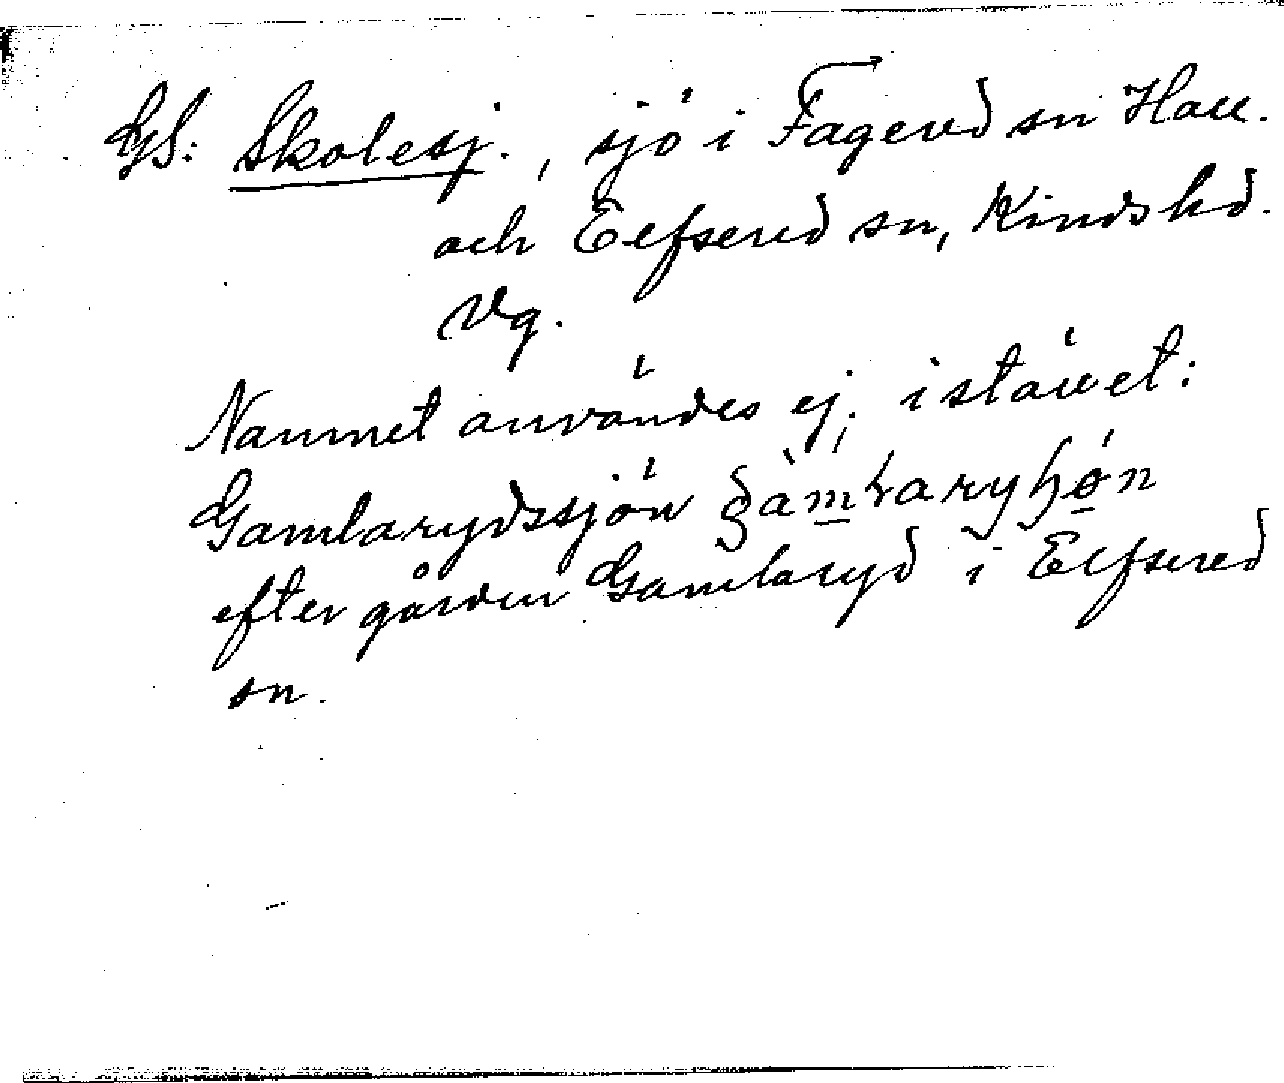 GS: Skolesj., sjö i Fagered sn Hall.
och Elfsered sn, Kinds hd.
Vg.
Namnet användes ej; istället:
Gamlarydssjön
efter gården Gamlaryd i Elfsered
sn.